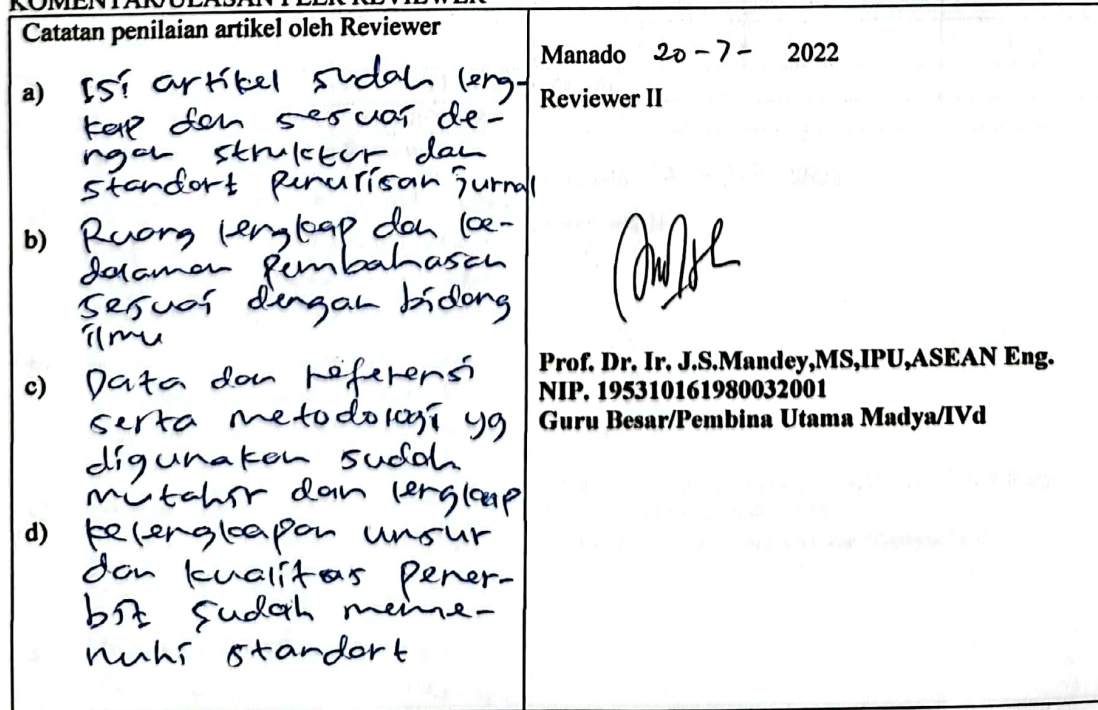 KOMENTAR/ULASAN PEER REVIEWER
Catatan penilaian artikel oleh Reviewer
a) Isi artikel sudah leng-
kap dan sesuai de-
ngan struktur dan
standort penulisan jurnal
b) Ruang lengkap dan ke-
dalaman pembahasan
sesuai dengan bidang
ilmu
c) Data dan referensi
serta metodologi yg
digunakan sudah
mutahir dan lengkap
d) kelengkapan unsur
dan kualitas pener-
bit sudah meme-
nuhi standort
Manado 20-7- 2022
Reviewer II
Prof. Dr. Ir. J.S.Mandey,MS,IPU,ASEAN Eng.
NIP. 195310161980032001
Guru Besar/Pembina Utama Madya/IVd